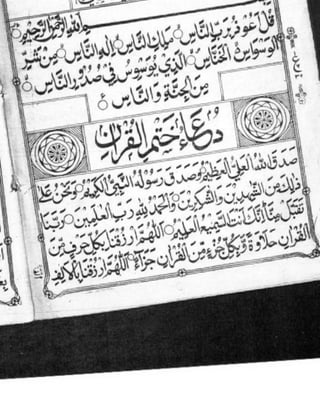 بسم الله الرحمن الرحيم
قل اعوذ برب الناس ملك الناس اله الناس من شر
الوسواس الخناس الذى يوسوس فى صدور الناس
من الجنة والناس
دعاء ختم القران
صدق الله العلى العظيم وصدق رسوله النبى الكريم ونحن على
ذلك من الشهدين والشكرين والحمد لله رب العلمين ربنا
تقبل منا انك انت السميع العليم اللهم ارزقنا بكل حرف من
القران حلاوة وبكل جزء من القران جزاء اللهم ارزقنا بالالف